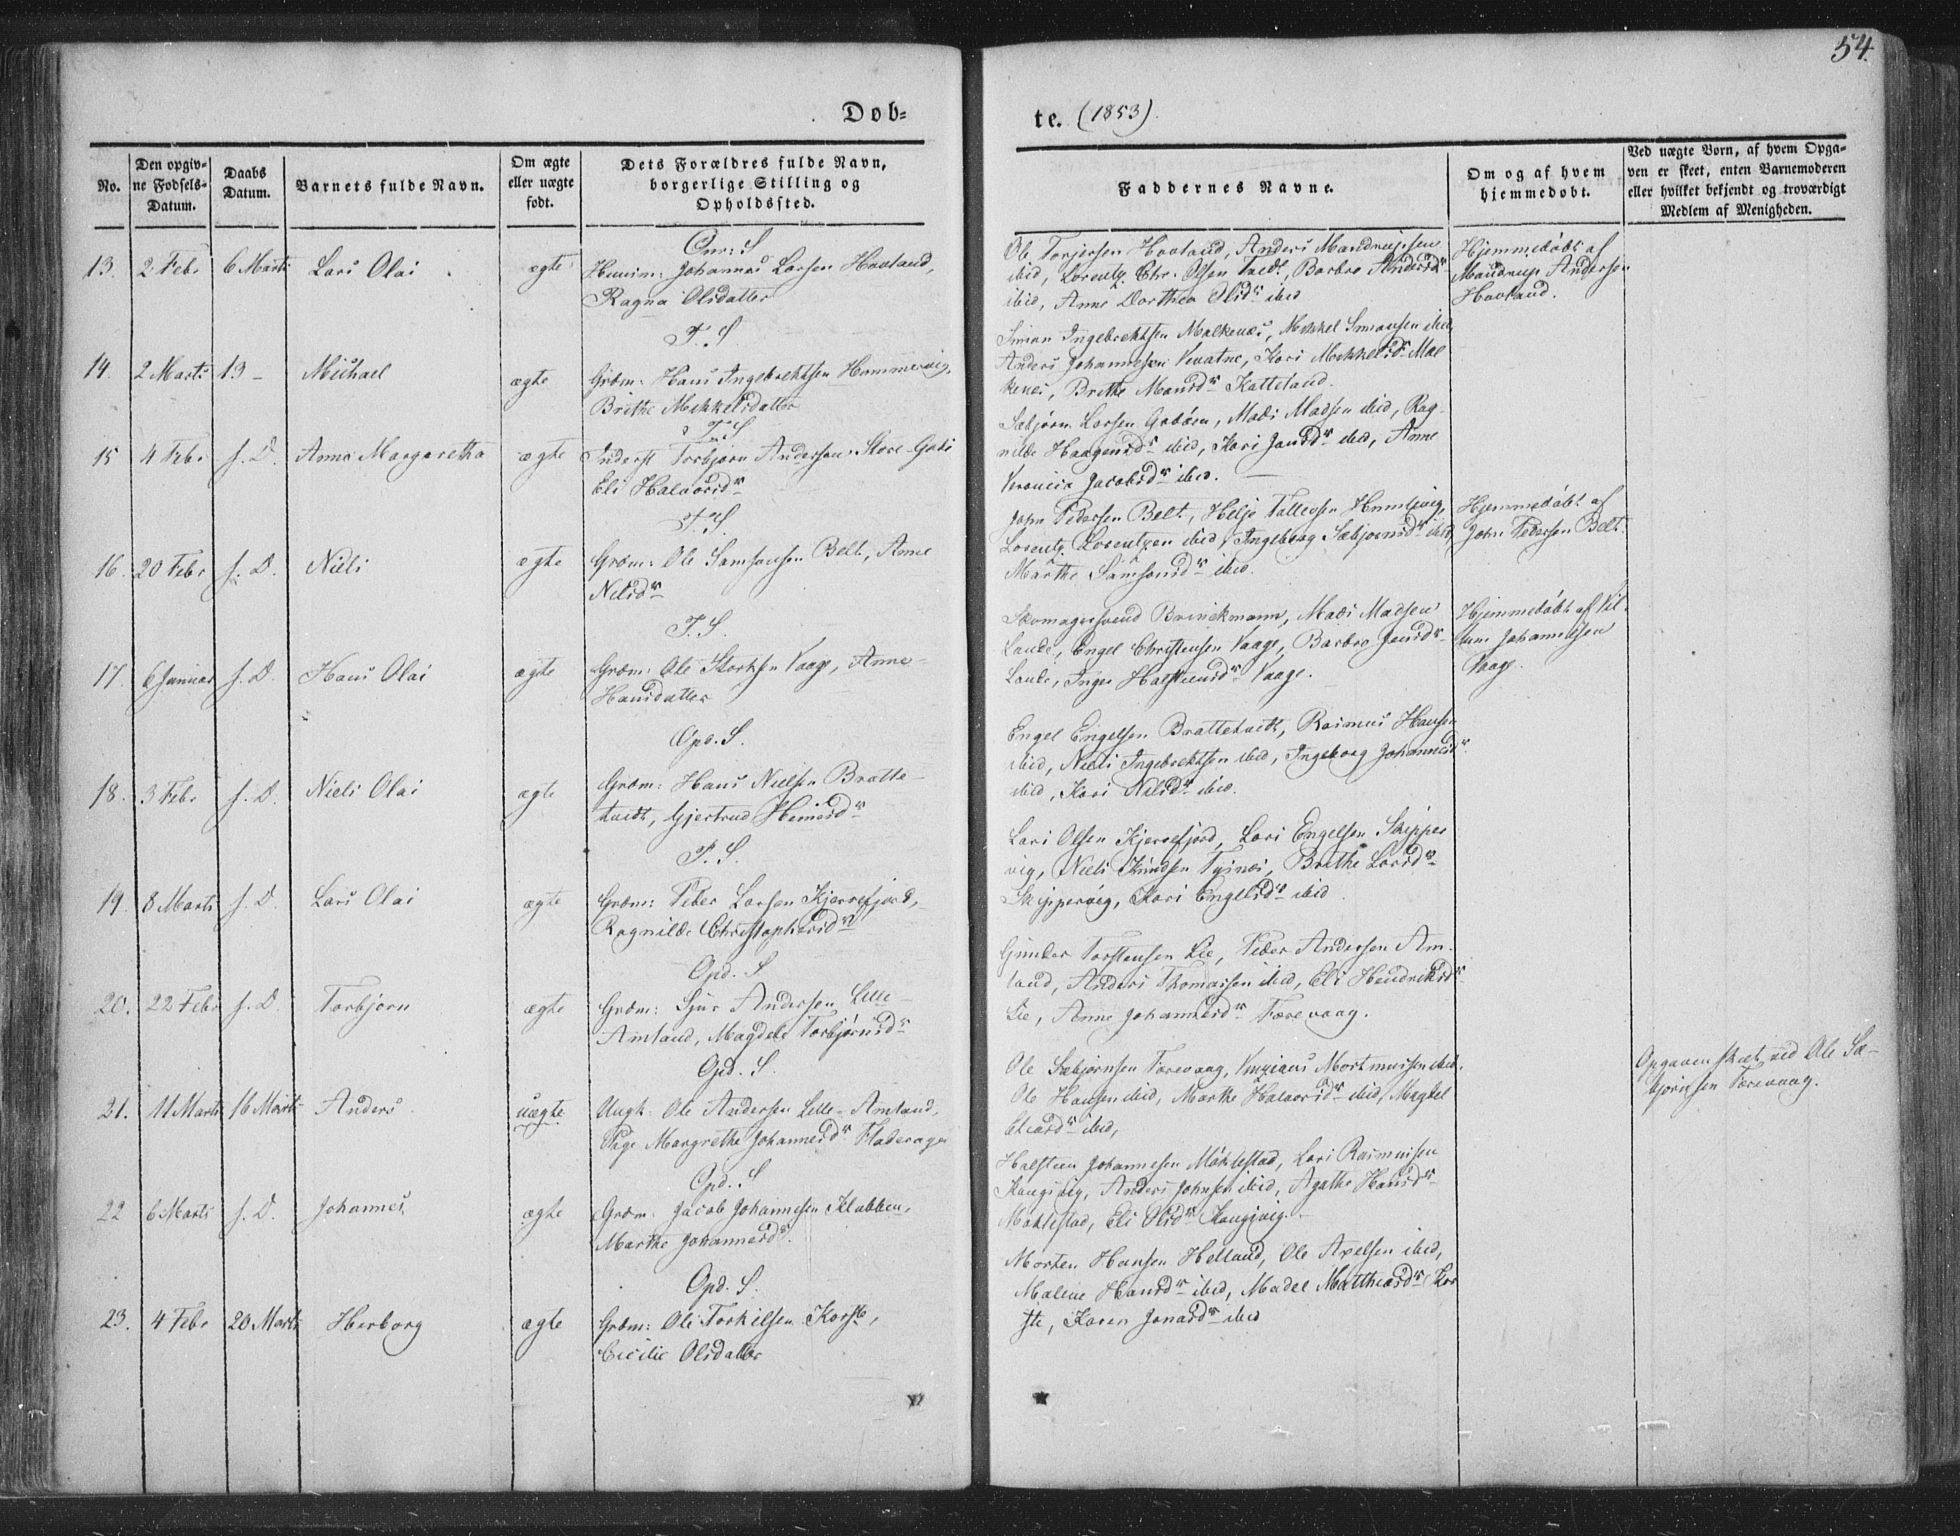 54.
Døb-
te. (1853).
No.
Den opgiv-
ne Fødsels-
Datum.
Daabs
Datum.
Barnets fulde Navn.
Om ægte
eller uægte
født.
Dets Forældres fulde Navn,
borgerlige Stilling og
Opholdssted.
Faddernes Navne.
Om og af hvem
hjemmedøbt.
Ved uægte Børn, af hvem Opga-
ven er skeet, enten Barnemoderen
eller hvilket bekjendt og troværdigt
Medlem af Menigheden.
13. 2 Febr 6 Marts Lars Olai ægte
Johannes Larsen Hovland,
Ragna Olsdatter
Ole Torjersen Hovland, Anders Mandrupsen
ibid, Lorentz Chr. Olsen Tvedt, Barbro Andersdr
ibid, Anne Dorthea Olsdr ibid
Hjemmedøbt af
Mandrup Andersen
Hovland.
T. S
14. 2 Marts 13 - Michael ægte
Grdm: Hans Ingebrektsen Hammervig,
Brithe Mekkelsdatter
Simon Ingebrektsen Malkenes, Mekkel Simonsen ibid,
Anders Johannessen Kvatne, Kari Mekkelsdr Mal
kenes, Brithe Monsdr Katteland.
T. S
15 4 Febr s. D. Anna Margaretha ægte
Inderst Torbjørn Andersen Store-Godø
Eli Halvorsdr
Sæbjørn Larsen Godøen, Mads Madsen ibid, Rag-
nilde Haagensdr ibid, Kari Jansdr ibid, Anne
Veronica Jacobsdr ibid.
T. S.
16. 20 Febr s. D. Niels ægte
Grdm: Ole Samsonsen Belt, Anne
Nilsdr
John Pedersen Belt, Helje Tollevsen Humlevig,
Lorentz Lorentzen ibid, Ingeborg Sæbjørnsdr ibid,
Marthe Samsonsdr ibid.
Hjemmedøbt af
John Pedersen Belt.
T. S.
17. 6 Januar s. D. Hans Olai ægte
Grdm: Ole Storksen Vaage, Anne
Hansdatter
Skomagersvend Brinckmann, Mads Madsen
Lande, Engel Christensen Vaage, Barbro Jensdr
Lande, Inger Halsteinsdr Vaage.
Hjemmedøbt af Vil-
lum Johannesen
Vaage.
Opd. S.
18. 3 Febr s. D. Niels Olai ægte
Grdm: Hans Nielsen Bratte-
tvedt, Gjertrud Heinesdr
Engel Engelsen Brattetvedt, Rasmus Hansen
ibid, Niels Ingebrektsen ibid, Ingeborg Johannesdr
ibid, Kari Nilsdr ibid.
T. S.
19. 8 Marts s. D. Lars Olai ægte
Grdm: Peder Larsen Kjerrefjord,
Ragnilde Christophersdr
Lars Olsen Kjerrefjord, Lars Engelsen Skipper
vig, Niels Knudsen Tysnes, Brithe Larsdr
Skippervig, Kari Engelsdr ibid
Opd. S
20. 22 Febr s. D Torbjørn ægte
Grdm: Sjur Andersen Lille
Amland, Magdele Torbjørnsdr
Gunder Torstensen Lie, Peder Andersen Am-
land, Anders Thomassen ibid, Eli Hendriksdr
Lie, Anne Johannesdr Færevaag.
Opd. S.
21. 11 Marts 16 Marts Anders uægte
Ungk: Ole Andersen Lille-Amland,
Pige Margrethe Johannesdr Fladerager
Ole Sæbjørnsen Færevaag, Mortinussen ibid.
Ole Hansen ibid, Marthe Halvorsdr ibid, Magdel
Eliasdr ibid,
Opgaven skeet ved Ole Sæ-
bjørnsen Færevaag.
Opd. S
22 6 Marts s. D. Johannes ægte
Grdm: Jacob Johannesen Klubben,
Marthe Johannesdr.
Halsteen Johannesen Møklestad, Lars Rasmussen
Kongsvig, Anders Johnsen ibid, Agathe Hansdr
Møklestad, Eli Olsdr Kongsvig.
Opd. S.
23. 4 Febr 20 Marts Herborg ægte
Grdm: Ole Torkilsen Korstø,
Cicilie Olsdatter
Morten Hansen Helland, Ole Axelsen ibid,
Malene Hansdr ibid, Madel Matthiasdr Kor
stø, Karen Jonasdr ibid